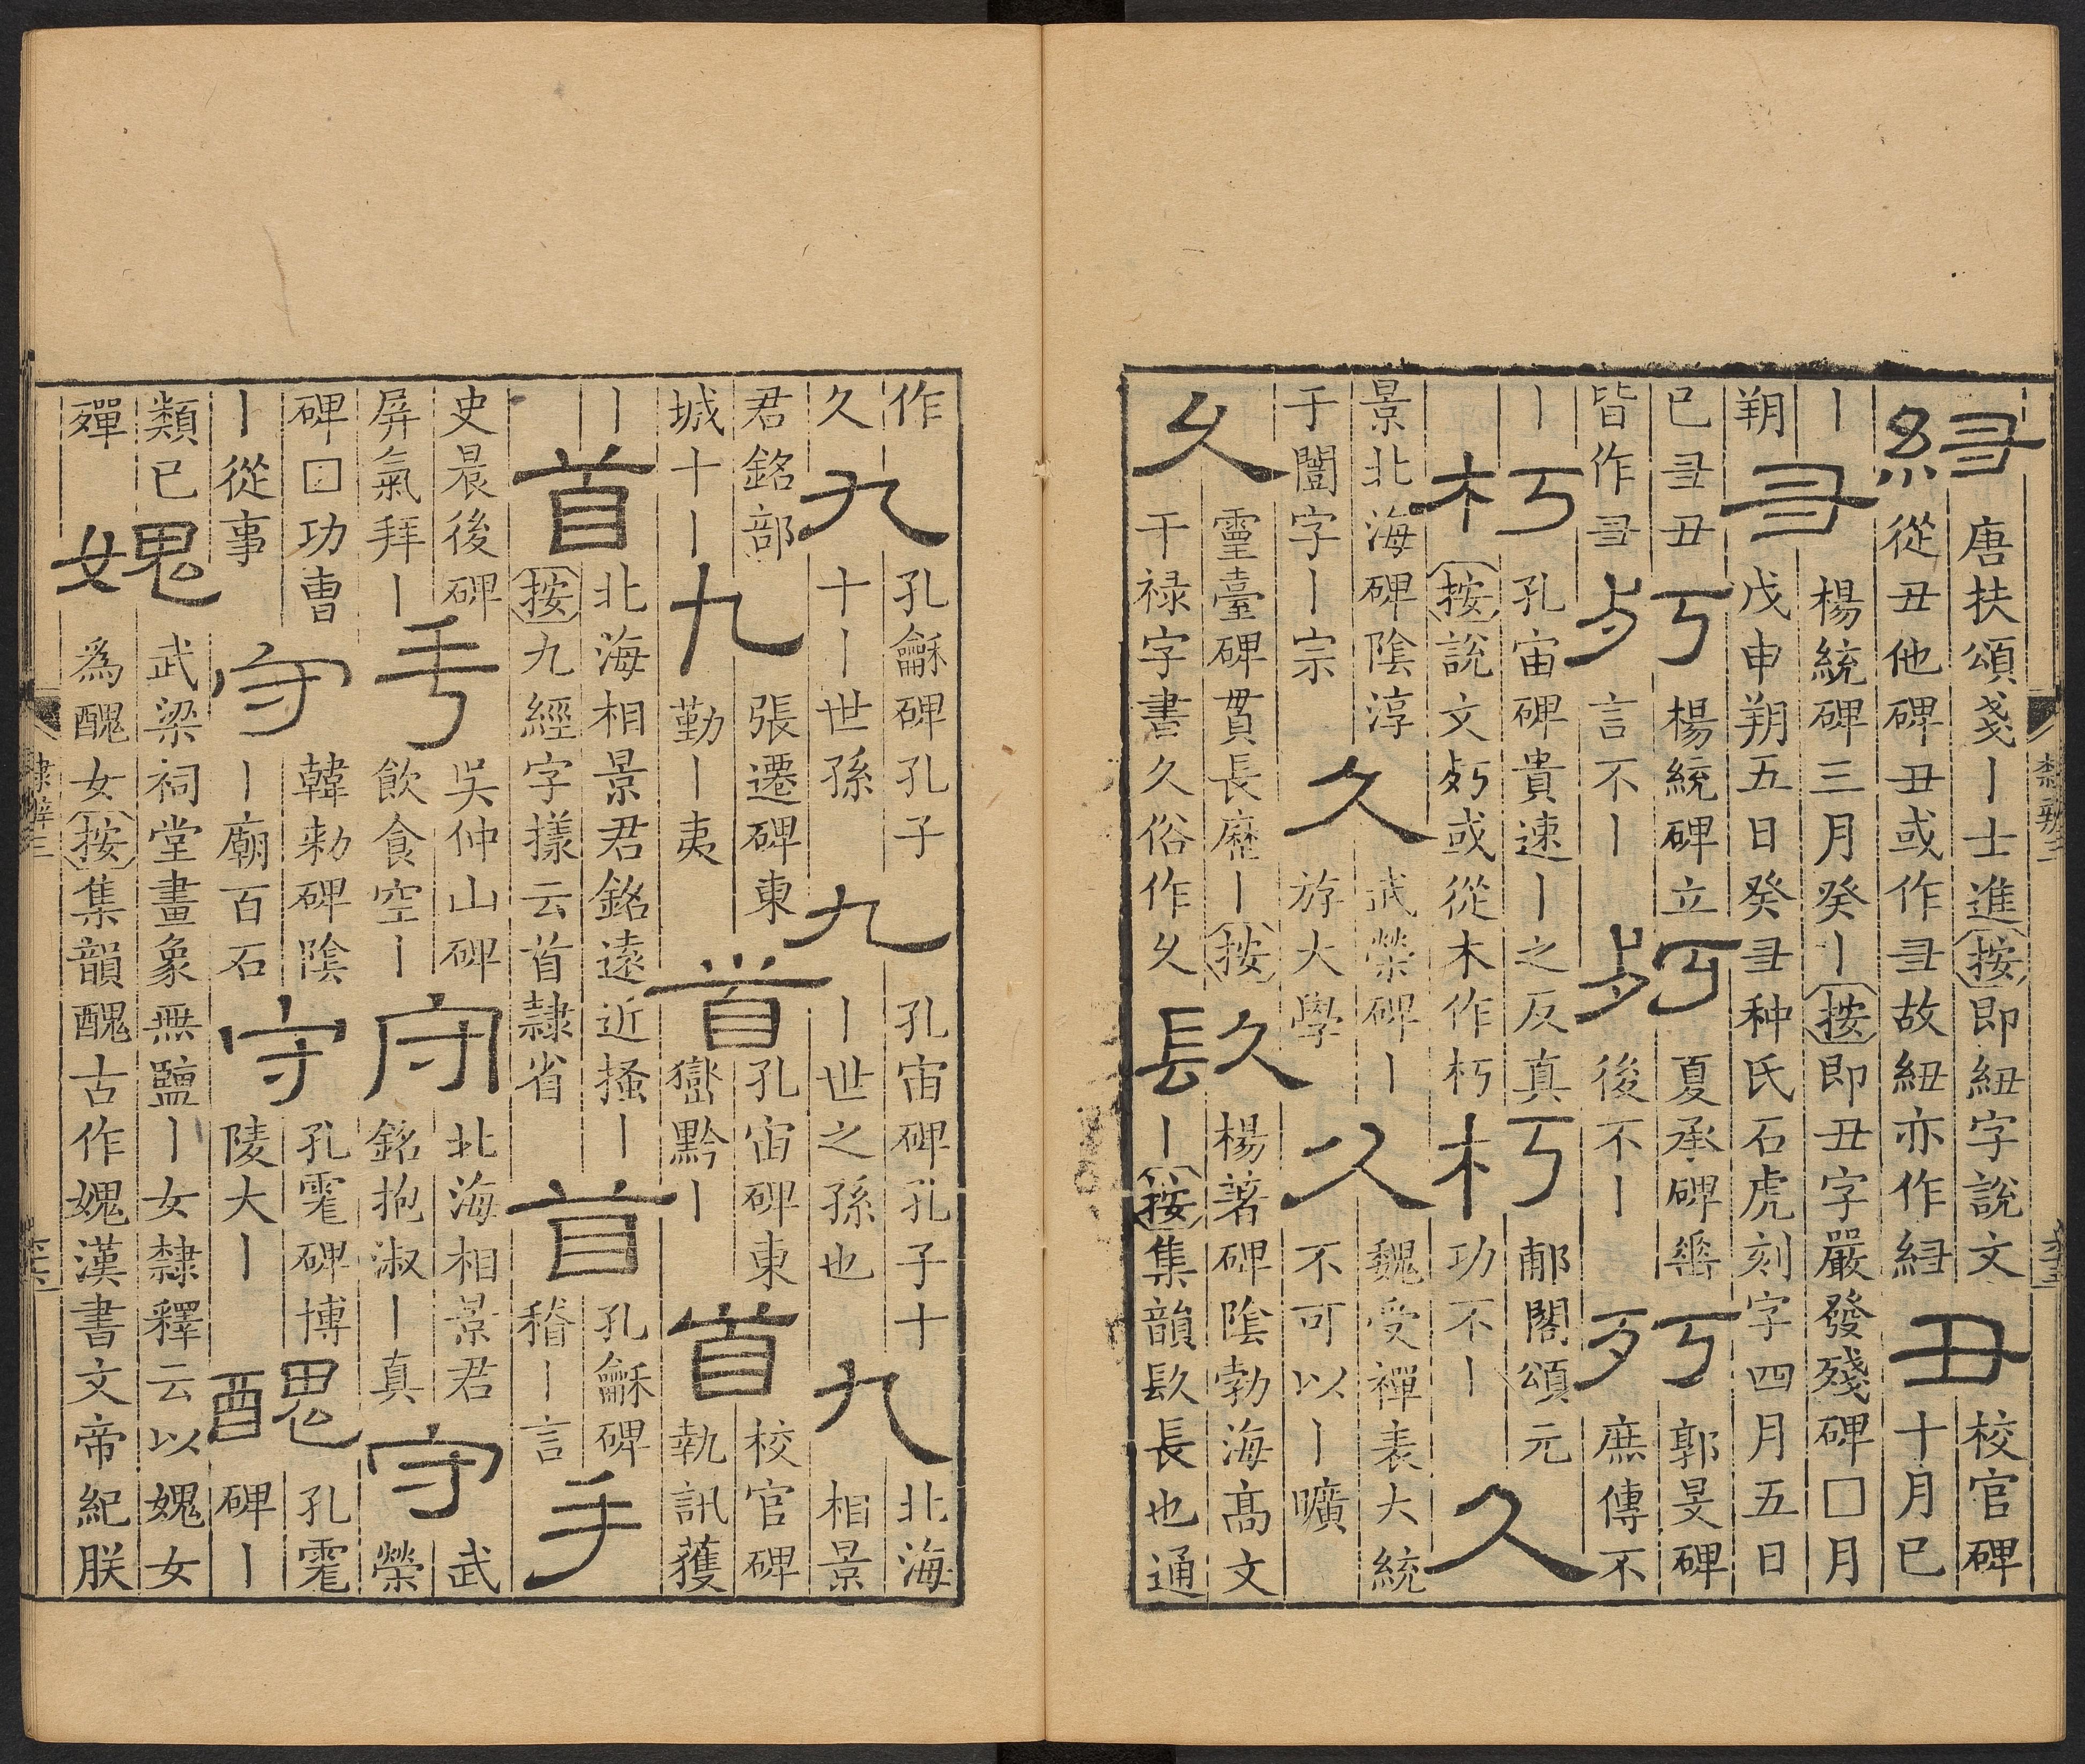 紐 唐扶頌戔丨士進按即紐字說文從丑他碑丑或作彐故紐亦作紐 丑 校官碑十月已
丨朔 丑 楊統碑三月癸丨按即丑字嚴發殘碑□月戊申朔五日癸彐种氏石虎刻字四月五日
已彐丑皆作彐 㱙 楊統碑立言不丨 㱙 夏承碑垂後不丨 㱙 郭旻碑庶傳不
丨 朽 孔宙碑貴速丨之反真按說文㱙或從木作朽 朽 郙閣頌元功不丨 久
景北海碑陰淳于闓字丨宗 久 武榮碑丨游大學 久 魏受禪表大統不可以丨曠
乆 靈臺碑貫長歷丨按干祿字書久俗作乆 镹 楊著碑陰勃海高文丨按集韻镹長也通
作久 九 孔龢碑孔子十丨世孫 九 孔宙碑孔子十丨世之孫也 九 北海相景
君銘部城十丨 九 張遷碑東勤丨夷 首 孔宙碑東嶽黔丨 首 校官碑執訊獲
丨 首 北海相景君銘遠近搔丨按九經字樣云首隸省 首 孔龢碑稽丨言 手
史晨後碑屏氣拜丨 手 吳仲山碑飲食空丨 守 北海相景君銘抱淑丨真 守 武榮
碑□功曹丨從事 守 韓勑碑陰丨廟百石 守 孔碑博陵大丨 醜 孔碑丨
類已殫 媿 武梁祠堂畫象無鹽丨女隸釋云以媿女為醜女按集韻醜古作媿漢書文帝紀朕